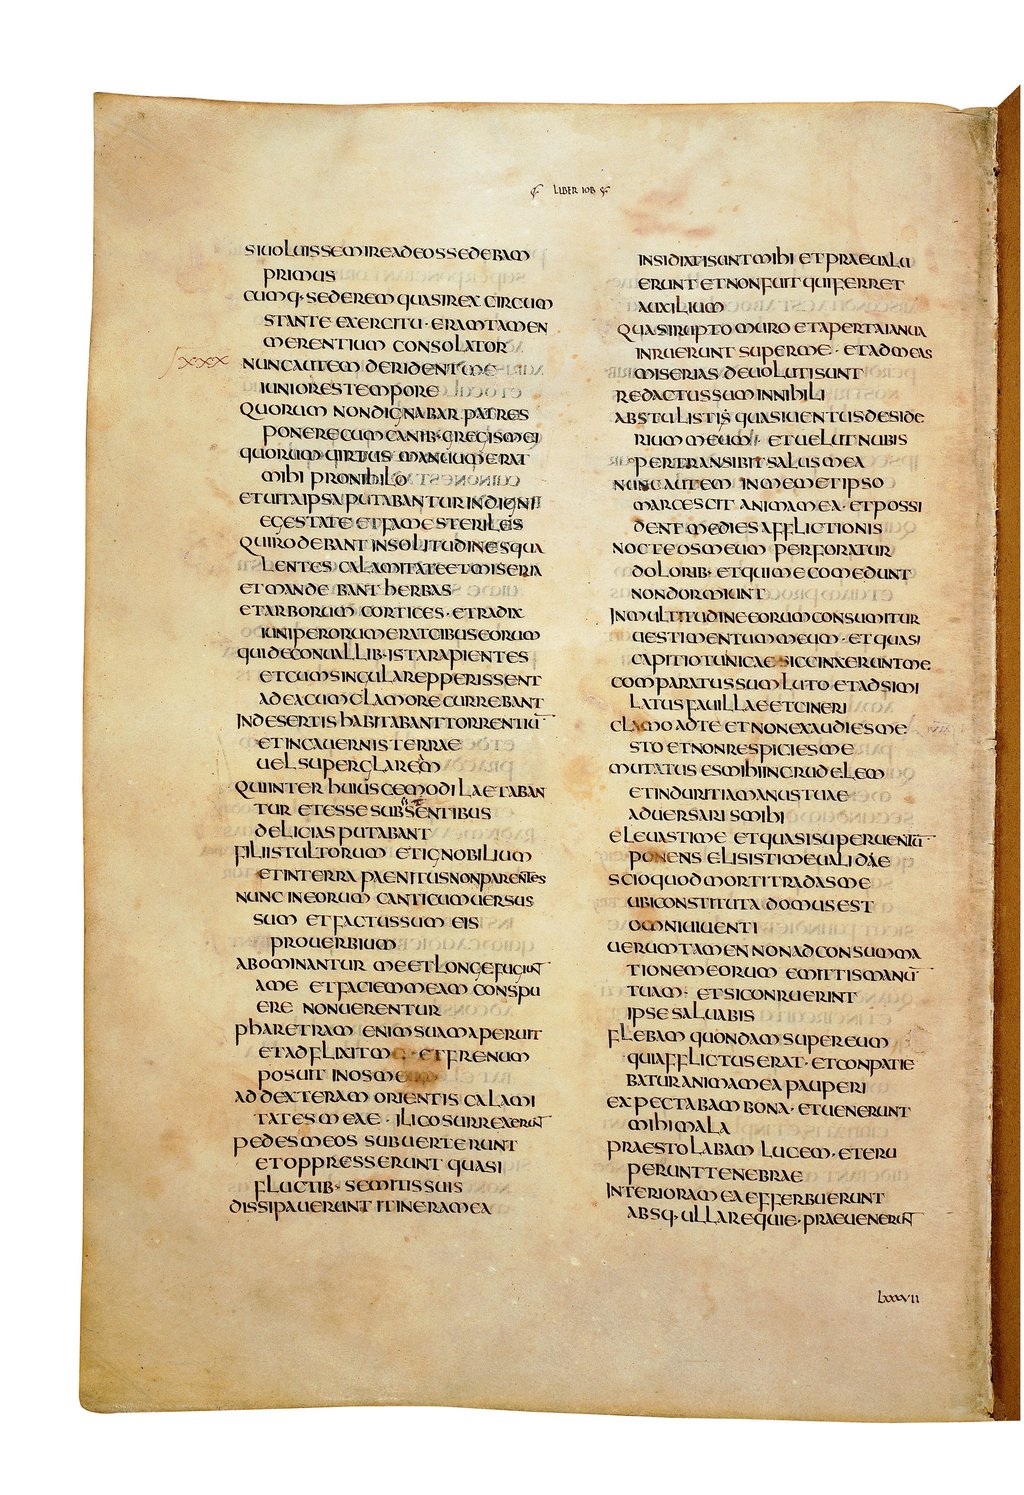 LIBER IOB
SIUOLUISSEMIREADEOSSEDEBAM
PRIMUS
CUMQ·SEDEREMQUASIREXCIRCUM
STANTE EXERCITU·ERAMTAMEN
MERENTIUM CONSOLATOR
XXX
NUNCAUTEM DERIDENTME
IUNIORESTEMPORE
QUORUM NONDIGNABAR PATRES
PONERECUMCANIB·GREGISMEI
QUORUM UIRTUS MANUUMERAT
MIHI PRONIHILO
ETUITAIPSAPUTABANTURINDIGNI
EGESTATE ETFAME STERILES
QUIRODEBANT INSOLITUDINESQUA
LENTES CALAMITATEETMISERIA
ETMANDEBANT HERBAS
ETARBORUM CORTICES·ETRADIX
IUNIPERORUMERATCIBUSEORUM
QUIDECONUALLIB·ISTARAPIENTES
ETCUMSINGULAREPPERISSENT
ADEACUMCLAMORECURREBANT
INDESERTIS HABITABANTTORRENTIŪ
ETINCAUERNISTERRAE
UELSUPERGLAREM
QUIINTER HUIUSCEMODI LAETABAN
TUR ETESSE SUBSENTIBUS
DELICIAS PUTABANT
FILIISTULTORUM ETIGNOBILIUM
ETINTERRA PAENITUSNONPARENTES
NUNC INEORUM CANTICUMUERSUS
SUM ETFACTUSSUM EIS
PROUERBIUM
ABOMINANTUR MEETLONGEFUGIUNT
AME ETFACIEMMEAM CONSPU
ERE NONUERENTUR
PHARETRAM ENIMSUAMAPERUIT
ETADFLIXITME·ETFRENUM
POSUIT INOSMEUM
ADDEXTERAM ORIENTIS CALAMI
TATESMEAE·ILICOSURREXERUNT
PEDESMEOS SUBUERTERUNT
ETOPPRESSERUNT QUASI
FLUCTIB·SEMITISSUIS
DISSIPAUERUNT ITINERAMEA
INSIDIATISUNTMIHI ETPRAEUALU
ERUNT ETNONFUIT QUIFERRET
AUXILIUM
QUASIRUPTO MURO ETAPERTAIANUA
INRUERUNT SUPERME·ETADMEAS
MISERIAS DEUOLUTISUNT
REDACTUSSUMINNIHILI
ABSTULISTIS QUASIUENTUSDESIDE
RIUMMEUM·ETUELUTNUBIS
PERTRANSIBIT SALUSMEA
NUNCAUTEM INMEMETIPSO
MARCESCIT ANIMAMEA·ETPOSSI
DENTMEDIESAFFLICTIONIS
NOCTEOSMEUM PERFORATUR
DOLORIB·ETQUIMECOMEDUNT
NONDORMIUNT
INMULTITUDINEEORUMCONSUMITUR
UESTIMENTUMMEUM·ETQUASI
CAPITIOTUNICAE SICCINXERUNTME
COMPARATUSSUMLUTO ETADSIMI
LATUSFAUILLAEETCINERI
CLAMO ADTE ETNONEXAUDIESME
STO ETNONRESPICIESME
MUTATUS ESMIHIINCRUDELEM
ETINDURITIAMANUSTUAE
ADUERSARISMIHI
ELEUASTIME ETQUASISUPERUENTŪ
PONENS ELISISTIMEUALIDAE
SCIOQUODMORTITRADASME
UBICONSTITUTA DOMUSEST
OMNIUIUENTI
UERUMTAMEN NONADCONSUMMA
TIONEMEORUM EMITTISMANŪ
TUAM·ETSICONRUERINT
IPSESALUABIS
FLEBAM QUONDAMSUPEREUM
QUIAFFLICTUSERAT·ETCONPATIE
BATURANIMAMEAPAUPERI
EXPECTABAMBONA·ETUENERUNT
MIHIMALA
PRAESTOLABAM LUCEM·ETERU
PERUNTTENEBRAE
INTERIORAMEAEFFERBUERUNT
ABSQ·ULLAREQUIE·PRAEUENERUNT
LXXXVII